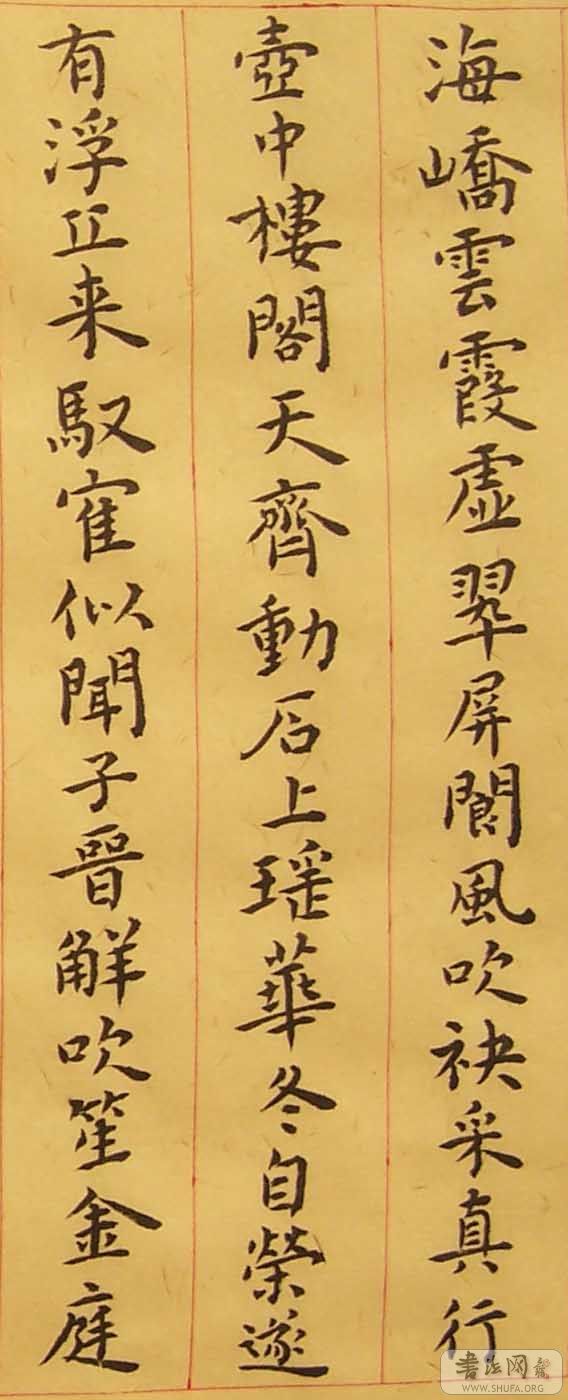 海嶠雲霞虛翠屏閬風吹袂采真行
壺中樓閣天齊動石上瑶華冬自榮遂
有浮丘来馭寉似聞子晉觧吹笙金庭
書法网
WWW.SHUFA.ORG